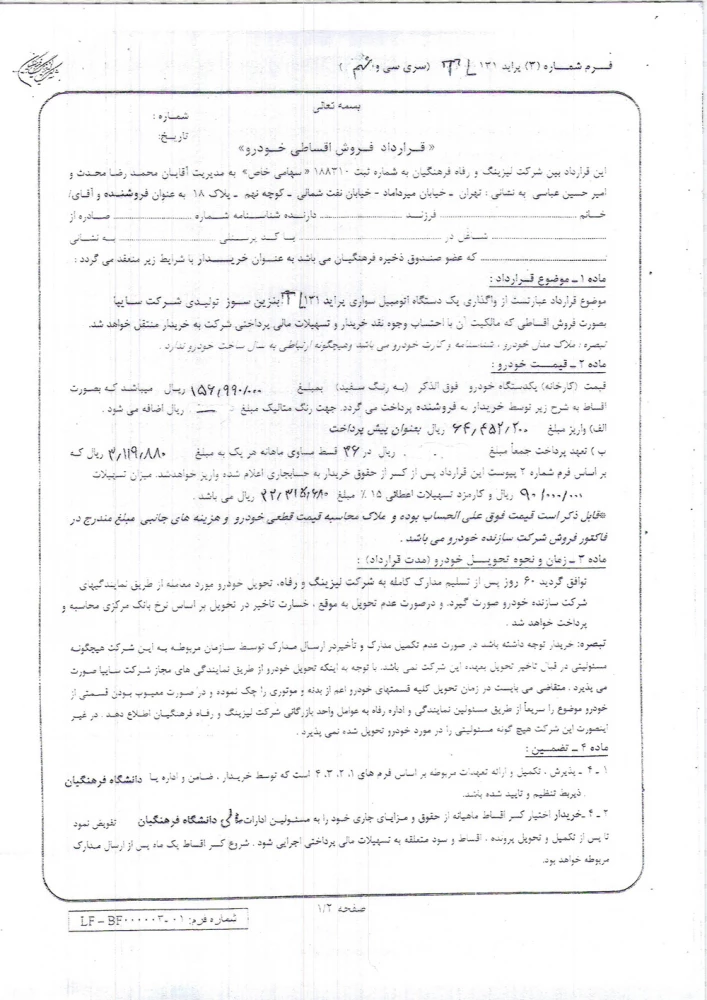 فـرم شمـاره (۳) پراید ۱۳۱ TL (سری سی و ششم)
بسمه تعالی
شمـاره :
تاریـخ:
« قـرارداد فـروش اقسـاطی خـودرو»
این قرارداد بین شرکت لیزینگ و رفاه فرهنگیان به شماره ثبت ۱۸۸۳۱۰ « سهامی خاص» به مدیریت آقایان محمـد رضا محـدث و
امیر حسین عباسی به نشانی : تهران ـ خیابان میرداماد - خیابان نفت شمالی ـ کوچه نهم ـ پلاک ۱۸ به عنوان فروشنده و آقـای/
خـانم ........ فرزنـد ........ دارنـده شناسـنامه شـماره ........ صـادره از
........ شـاغل در ........ بـا کـد پرسـنلی ........ بـه نشـانی
........ که عضو صنـدوق ذخیره فرهنگیـان می باشد به عنــوان خریــدار با شرایط زیر منعقد می گردد :
ماده ۱ ـ موضوع قـرارداد :
موضوع قرارداد عبارتست از واگذاری یک دستگاه اتومبیل سواری پراید ۱۳۱ TL بنزین سـوز تولیـدی شـرکت سـایپا
بصورت فروش اقساطی که مالکیت آن با احتساب وجوه نقد خریدار و تسهیلات مالی پرداختی شرکت به خریدار منتقل خواهد شد.
تبصره : ملاک مدل خودرو ، شناسنامه و کارت خودرو می باشد وهیچگونه ارتباطی به سال ساخت خودرو ندارد .
ماده ۲ ـ قیمـت خودرو :
قیمت (کارخانه) یکدستگاه خودرو فوق الذکر (بـه رنـگ سـفید) بمبلـغ ۱۵۶٫۹۹۰٫۰۰۰ ریـال میباشـد کـه بصـورت
اقساط به شرح زیر توسط خریدار به فروشنده پرداخت می گردد. جهت رنگ متالیک مبلغ ـــ ریال اضافه می شود .
الف) واریز مبلغ ۶۴٫۴۵۲٫۲۰۰ ریال بعنوان پیش پرداخت
ب ) تعهد پرداخت جمعاً مبلغ ریال در ۳۶ قسط مساوی ماهانه هر یک به مبلغ ۳٫۱۱۹٫۸۸۰ ریال کـه
بر اساس فرم شماره ۲ پیوست این قرارداد پس از کسر از حقوق خریدار به حسابجاری اعلام شده واریز خواهدشد. میزان تسهیلات
۹۰٫۰۰۰٫۰۰۰ ریال و کارمزد تسهیلات اعطائی ۱۵ ٪ مبلغ ۲۲٫۳۱۵٫۶۸۰ ریال می باشد .
*قابل ذکر است قیمت فوق علی الحساب بوده و ملاک محاسبه قیمت قطعی خودرو و هزینه های جانبی مبلغ مندرج در
فاکتور فروش شرکت سازنده خودرو می باشد .
ماده ۳ ـ زمان و نحوه تحویـــل خـودرو (مدت قرارداد) :
توافق گردید ۶۰ روز پس از تسلیم مدارک کامله به شرکت لیزینگ و رفاه، تحویل خودرو مورد معامله از طریق نمایندگیهای
شرکت سازنده خودرو صورت گیرد. و درصورت عدم تحویل به موقع ، خسارت تاخیر در تحویل بر اساس نرخ بانک مرکزی محاسبه و
پرداخت خواهد شد .
تبصره: خریدار توجه داشته باشد در صورت عدم تکمیل مدارک و تأخیردر ارسال مـدارک توسـط سـازمان مربوطـه بـه ایـن شـرکت هیچگونـه
مسئولیتی در قبال تاخیر تحویل بعهده این شرکت نمی باشد. با توجه به اینکه تحویل خودرو از طریق نمایندگی های مجاز شرکت سـایپا صـورت
می پذیرد ، متقاضی می بایست در زمان تحویل کلیه قسمتهای خودرو اعم از بدنه و موتوری را چک نموده و در صورت معیـوب بـودن قسـمتی از
خودرو موضوع را سریعاً از طریق مسئولین نمایندگی و اداره رفاه به عوامل واحد بازرگانی شرکت لیزینگ و رفـاه فرهنگیـان اطلاع دهـد . در غیـر
اینصورت این شرکت هیچ گونه مسئولیتی را در مورد خودرو تحویل شده نمی پذیرد .
ماده ۴ ـ تضمیـن :
۱ ـ ۴ ـ پذیرش ، تکمیل و ارائه تعهدات مربوطه بر اساس فرم های ۱، ۲، ۳، ۴ است که توسط خریـدار ، ضـامن و اداره یـا دانشگاه فرهنگیان
ذیربط تنظیم و تایید شده باشد.
۲ ـ ۴ـ خریدار اختیار کسر اقساط ماهیانه از حقوق و مـزایـای جاری خـود را به مسئـولیـن ادارات مالی دانشگاه فرهنگیان تفویض نمود
تا پس از تکمیل و تحویل پرونده ، اقساط و سود متعلقه به تسهیلات مالی پرداختی اجرایی شود . شروع کسر اقساط یک ماه پس از ارسال مـدارک
مربوطه خواهد بود.
صفحه ۱/۲
شماره فرم: LF – BF۰۰۰۰۰۳-۰۱